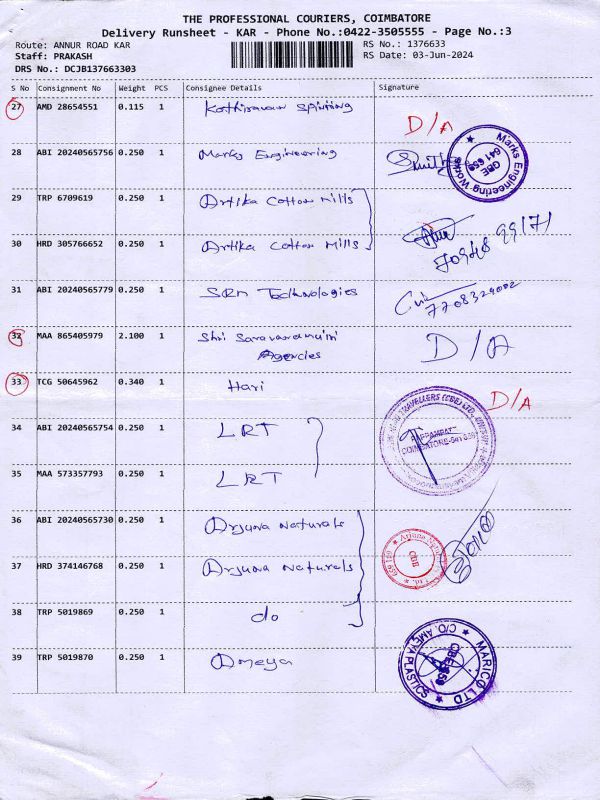 THE PROFESSIONAL COURIERS, COIMBATORE
Delivery Runsheet - KAR - Phone No.:0422-3505555 - Page No.:3
Route: ANNUR ROAD KAR RS No.: 1376633
Staff: PRAKASH RS Date: 03-Jun-2024
DRS No.: DCJB137663303
S No Consignment No Weight PCS Consignee Details Signature
27 AMD 28654551 0.115 1 Kathiravan Spinning D/A
28 ABI 20240565756 0.250 1 Marks Engineering
Marks Engineering Works
CBE
641 659
29 TRP 6709619 0.250 1 Artika Cotton Mills
30 HRD 305766652 0.250 1 Artika Cotton Mills
31 ABI 20240565779 0.250 1 SRM Technologies
32 MAA 865405979 2.100 1 Shri Saravanamuni D/A
Agencies
33 TCG 50645962 0.340 1 Hari D/A
34 ABI 20240565754 0.250 1 LRT
35 MAA 573357793 0.250 1 LRT
36 ABI 20240565730 0.250 1 Arjuna Naturals
37 HRD 374146768 0.250 1 Arjuna Naturals
CBE
38 TRP 5019869 0.250 1 do
39 TRP 5019870 0.250 1 Ameya
MARICO LTD
C/O. AMEYA PLASTICS